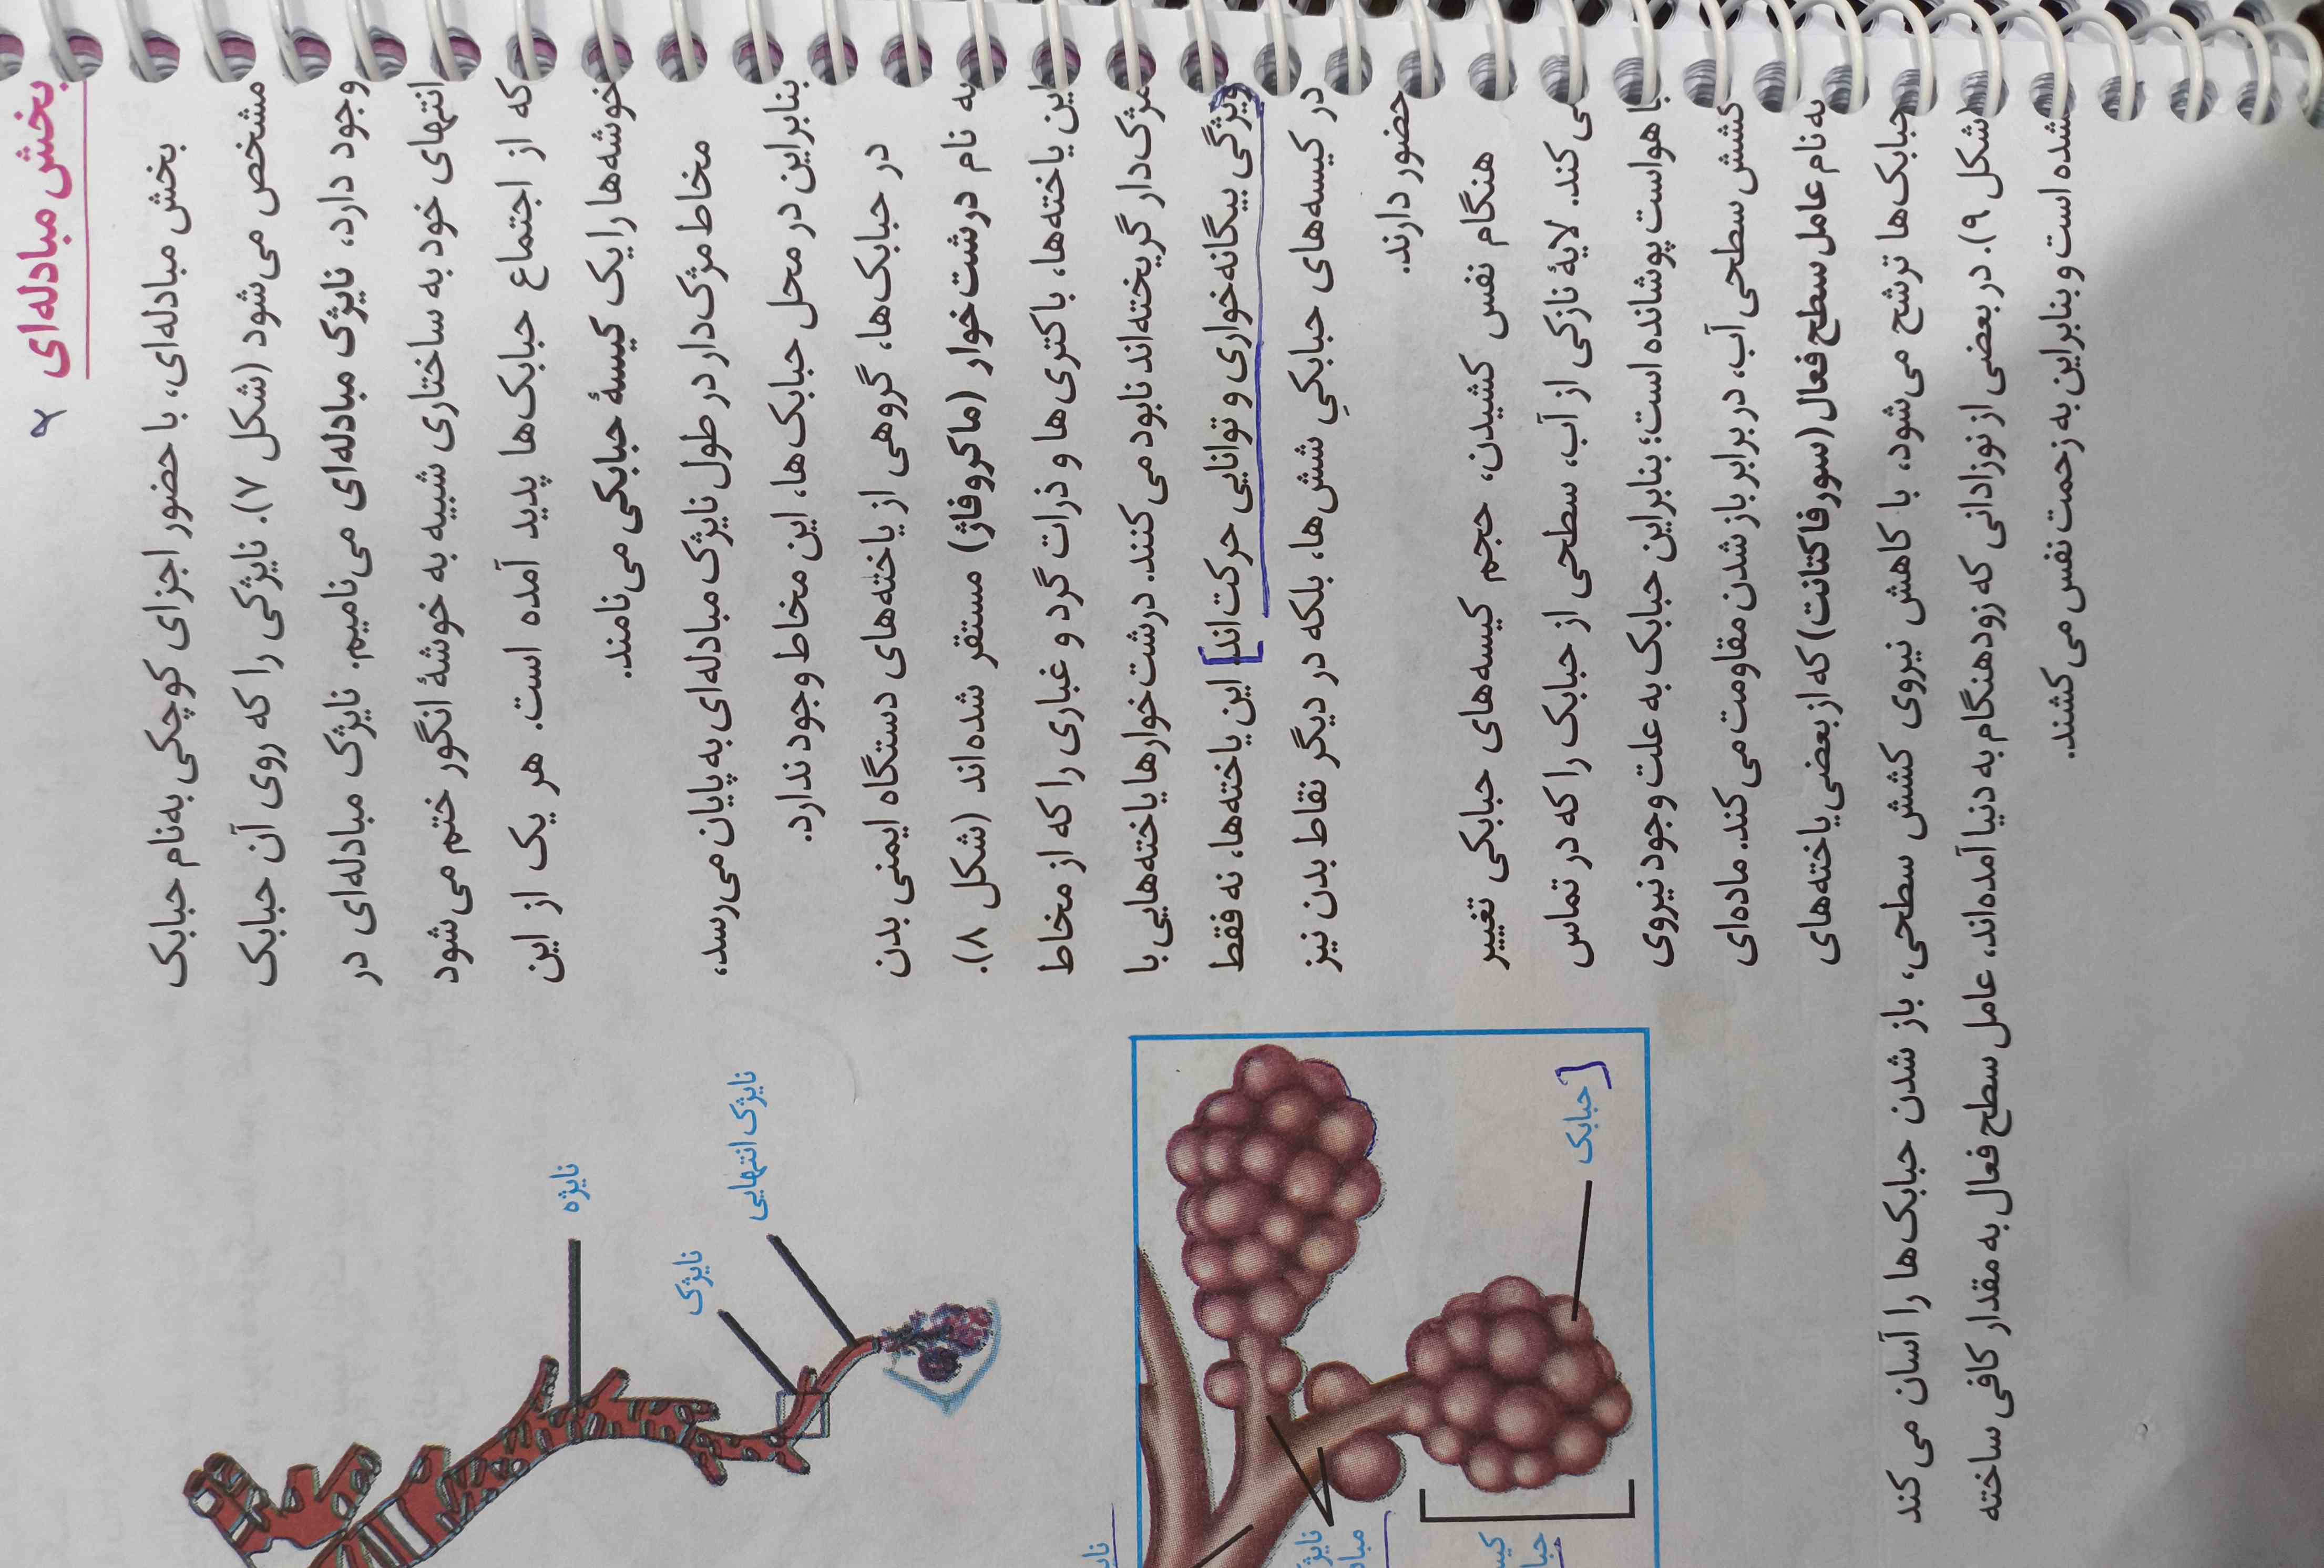 بخش مبادله‌ای
بخش مبادله‌ای، با حضور اجزای کوچکی به‌نام حبابک
مشخص می‌شود (شکل ۷). نایژکی را که روی آن حبابک
وجود دارد، نایژک مبادله‌ای می‌نامیم. نایژک مبادله‌ای در
انتهای خود به ساختاری شبیه به خوشهٔ انگور ختم می‌شود
که از اجتماع حبابک‌ها پدید آمده است. هر یک از این
خوشه‌ها را یک کیسهٔ حبابکی می‌نامند.
مخاط مژک‌دار در طول نایژک مبادله‌ای به پایان می‌رسد،
بنابراین در محل حبابک‌ها، این مخاط وجود ندارد.
در حبابک‌ها، گروهی از یاخته‌های دستگاه ایمنی بدن
به نام درشت‌خوار (ماکروفاژ) مستقر شده‌اند (شکل ۸).
این یاخته‌ها، باکتری‌ها و ذرات گرد و غباری را که از مخاط
مژک‌دار گریخته‌اند نابود می‌کنند. درشت‌خوارها یاخته‌هایی با
ویژگی بیگانه‌خواری و توانایی حرکت‌اند] این یاخته‌ها، نه فقط
در کیسه‌های حبابکیِ شش‌ها، بلکه در دیگر نقاط بدن نیز
حضور دارند.
هنگام نفس کشیدن، حجم کیسه‌های حبابکی تغییر
می‌کند. لایهٔ نازکی از آب، سطحی از حبابک را که در تماس
با هواست پوشانده است؛ بنابراین حبابک به علت وجود نیروی
کشش سطحی آب، در برابر باز شدن مقاومت می‌کند. ماده‌ای
به نام عامل سطح فعال (سورفاکتانت) که از بعضی یاخته‌های
حبابک‌ها ترشح می‌شود، با کاهش نیروی کشش سطحی، باز شدن حبابک‌ها را آسان می‌کند
(شکل ۹). در بعضی از نوزادانی که زودهنگام به دنیا آمده‌اند، عامل سطح فعال به مقدار کافی ساخته
شده است و بنابراین به زحمت نفس می‌کشند.
نایژه
نایژک
نایژک انتهایی
حبابک]